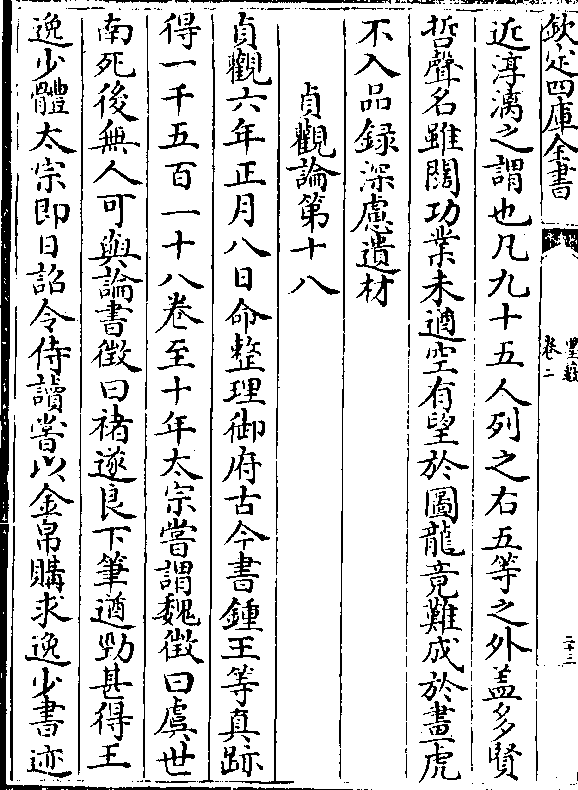 欽定四庫全書
墨藪
卷二
二十三
近淳漓之謂也凡九十五人列之右五等之外蓋多賢
哲聲名雖闊功業未遒空有望於圖龍竟難成於畫虎
不入品録深慮遺材
貞觀論第十八
貞觀六年正月八日命整理御府古今書鍾王等真跡
得一千五百一十八卷至十年太宗嘗謂魏徴曰虞世
南死後無人可與論書徴曰禇遂良下筆遒勁甚得王
逸少體太宗即日詔令侍讀嘗以金帛購求逸少書迹